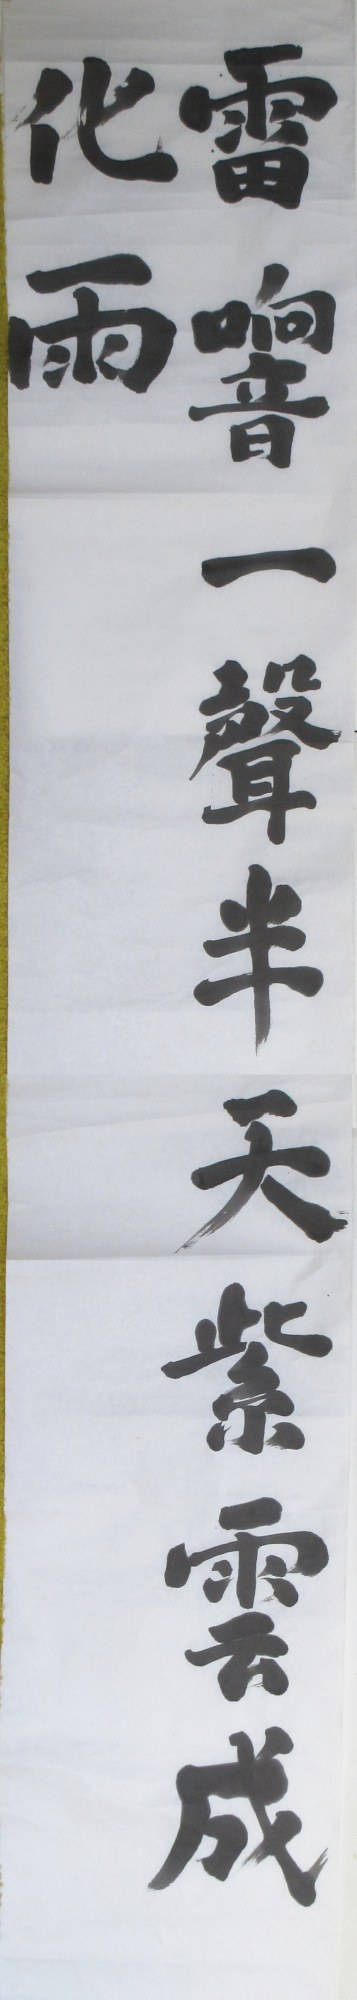 雷響一聲半天紫雲成
化雨